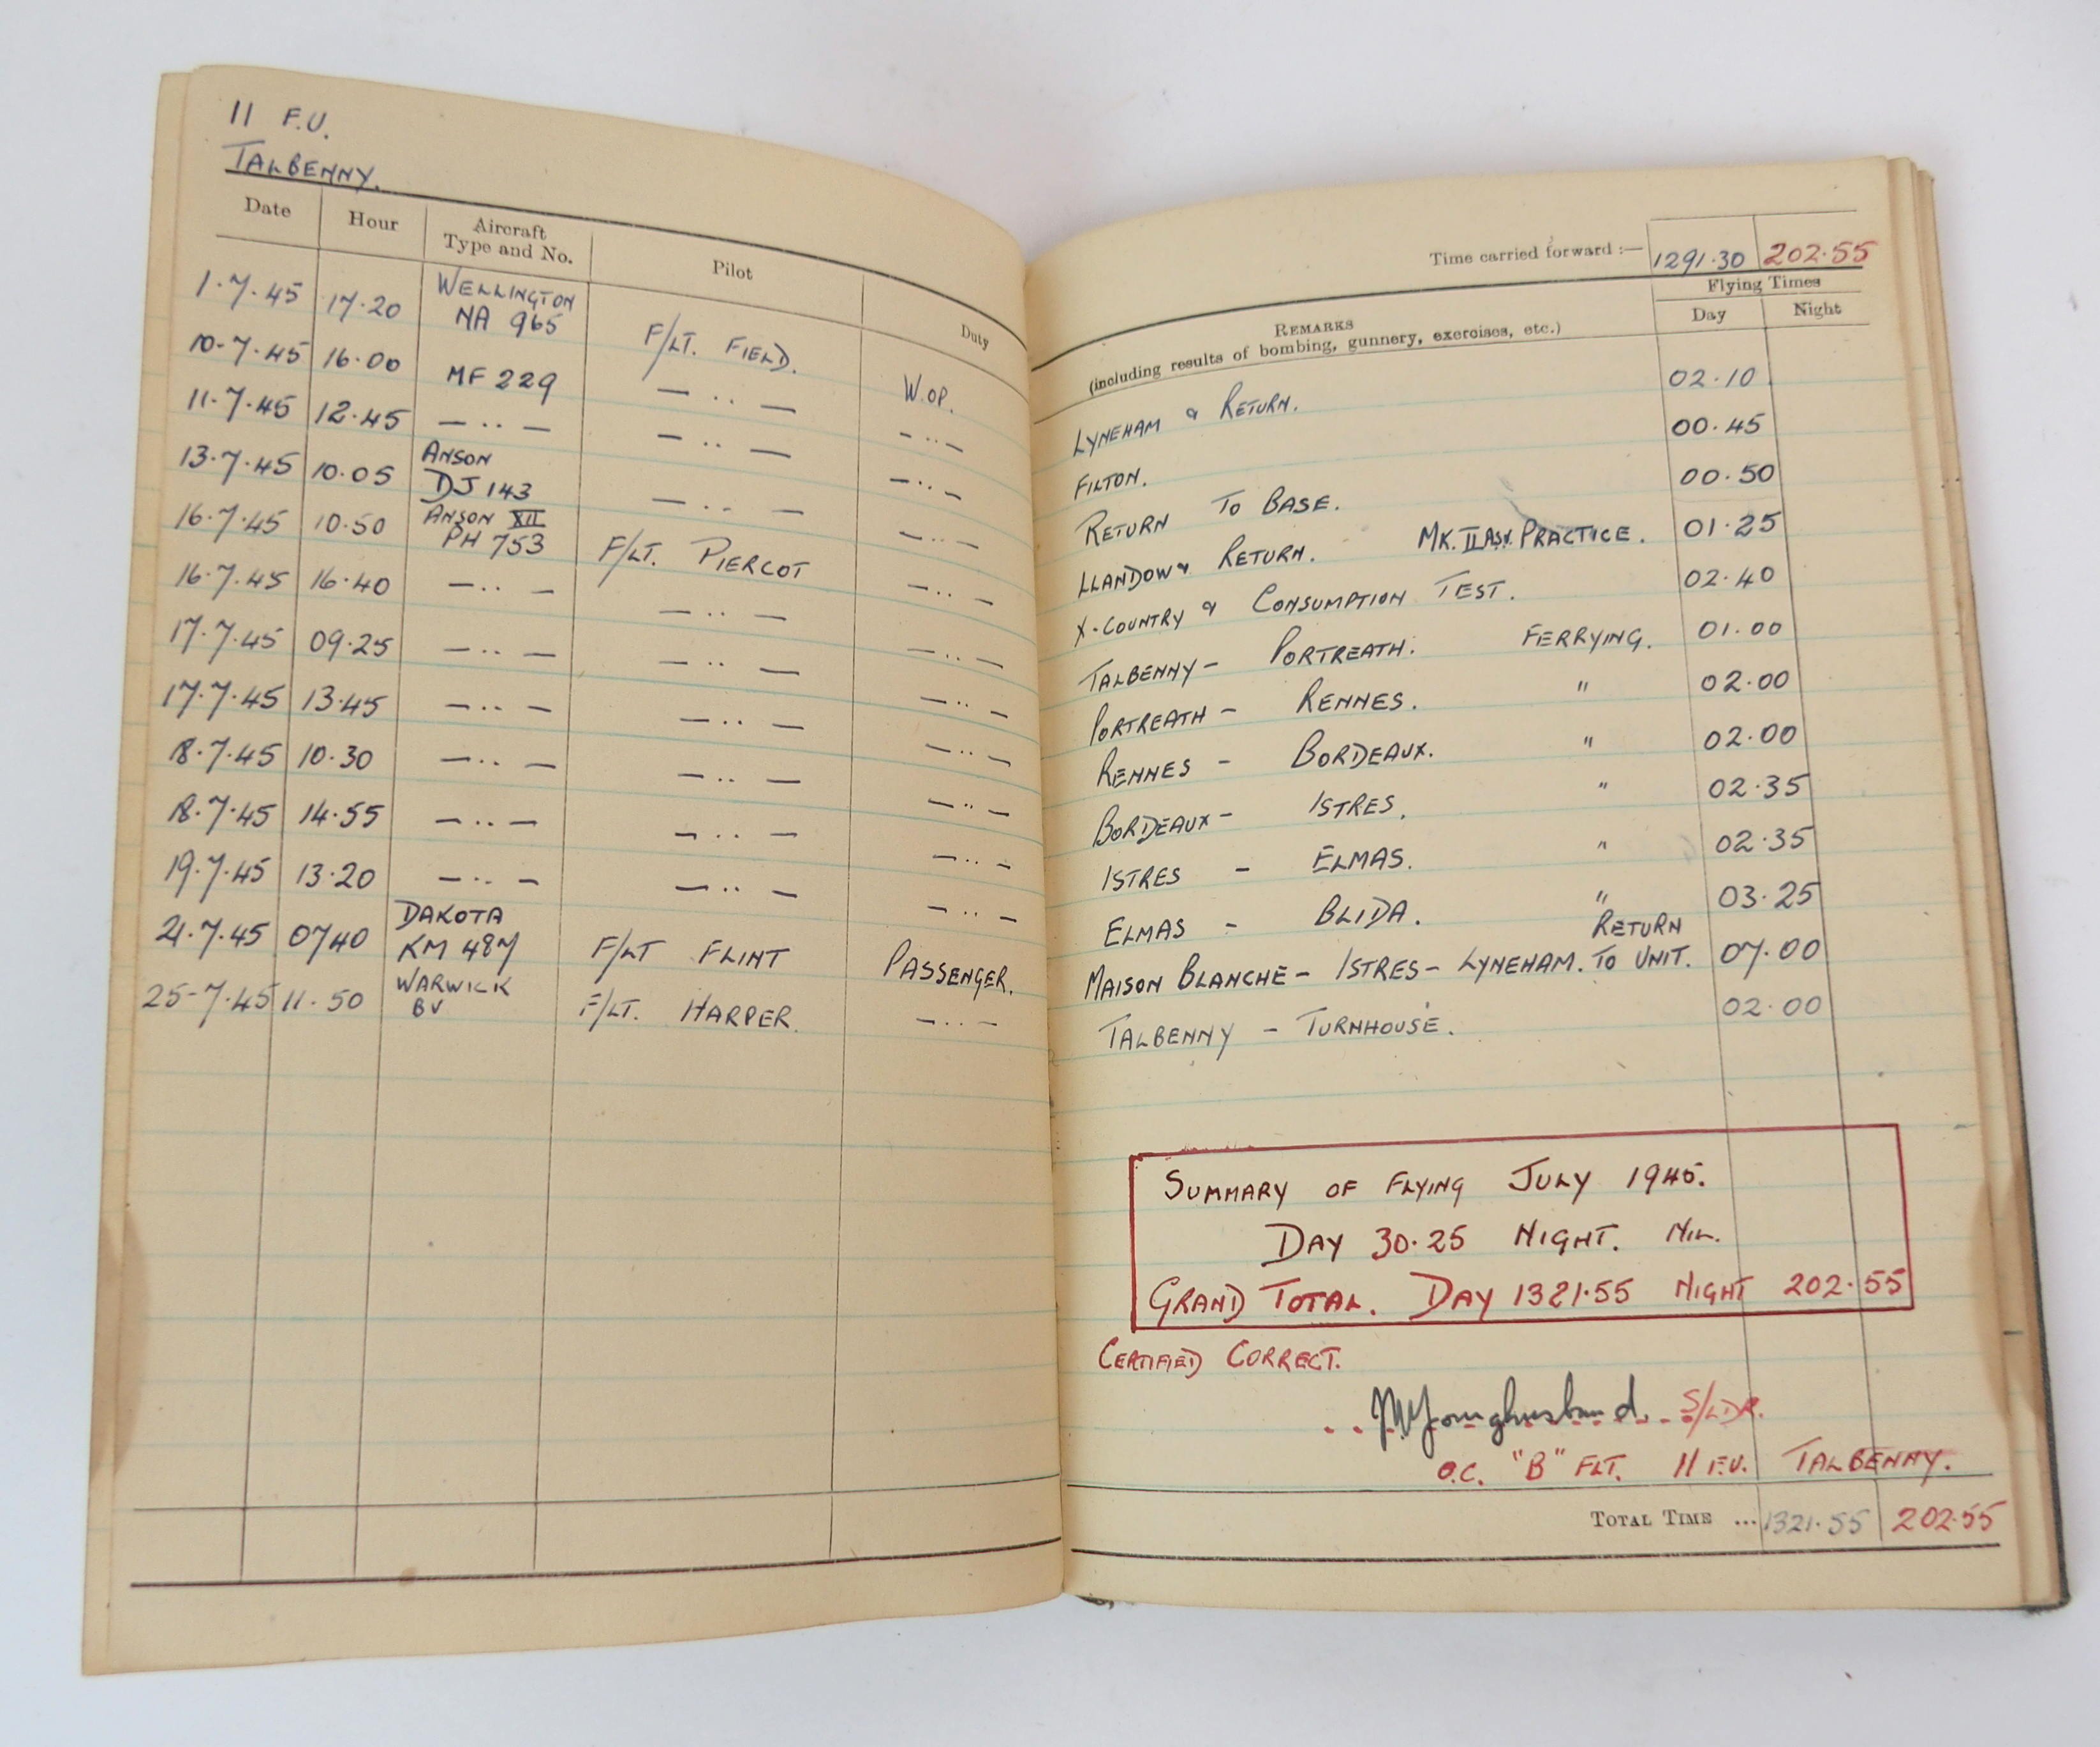 11 F.U.
TALBENNY.
Date Hour Aircraft Type and No. Pilot Duty
1.7.45 17.20 WELLINGTON NA 965 F/LT. FIELD. W.OP.
10-7.45 16.00 MF 229 — .. — — .. —
11.7.45 12.45 — .. — — .. — — .. —
13.7.45 10.05 ANSON DJ 143 — .. — — .. —
16.7.45 10.50 ANSON XII PH 753 F/LT. PIERCOT — .. —
16.7.45 16.40 — .. — — .. — — .. —
17.7.45 09.25 — .. — — .. — — .. —
17.7.45 13.45 — .. — — .. — — .. —
18.7.45 10.30 — .. — — .. — — .. —
18.7.45 14.55 — .. — — .. — — .. —
19.7.45 13.20 — .. — — .. — — .. —
21.7.45 0740 DAKOTA KM 487 F/LT FLINT PASSENGER.
25-7.45 11.50 WARWICK BV F/LT. HARPER. — .. —
Time carried forward :— 1291.30 202.55
REMARKS
(including results of bombing, gunnery, exercises, etc.)
Flying Times
Day Night
LYNEHAM & RETURN. 02.10
FILTON. 00.45
RETURN TO BASE. 00.50
LLANDOW & RETURN. MK. II ASV. PRACTICE. 01.25
X-COUNTRY & CONSUMPTION TEST. 02.40
TALBENNY - PORTREATH. FERRYING. 01.00
PORTREATH - RENNES. " 02.00
RENNES - BORDEAUX. " 02.00
BORDEAUX - ISTRES. " 02.35
ISTRES - ELMAS. " 02.35
ELMAS - BLIDA. " 03.25
MAISON BLANCHE - ISTRES - LYNEHAM. RETURN TO UNIT. 07.00
TALBENNY - TURNHOUSE. 02.00
SUMMARY OF FLYING JULY 1945.
DAY 30.25 NIGHT. NIL.
GRAND TOTAL. DAY 1321.55 NIGHT 202.55
CERTIFIED CORRECT.
Younghusband. S/LDR.
O.C. "B" FLT. 11 F.U. TALBENNY.
TOTAL TIME ... 1321.55 202.55